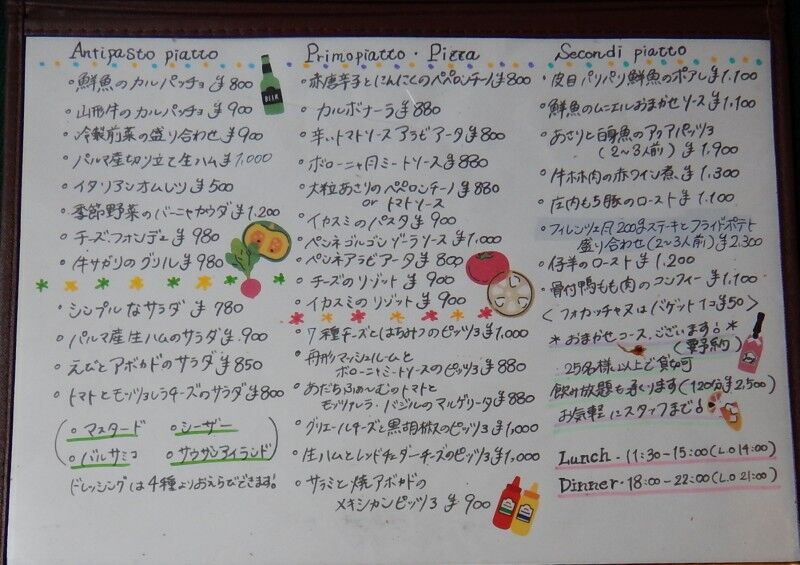 Antipasto piatto
・鮮魚のカルパッチョ ¥800
・山形牛のカルパッチョ ¥900
・冷製前菜の盛り合わせ ¥900
・パルマ産切り立て生ハム ¥1,000
・イタリアンオムレツ ¥500
・季節野菜のバーニャカウダ ¥1,200
・チーズフォンデュ ¥980
・牛サガリのグリル ¥980
・シンプルなサラダ ¥780
・パルマ産生ハムのサラダ ¥900
・えびとアボカドのサラダ ¥850
・トマトとモッツァレラチーズのサラダ ¥800
・マスタード ・シーザー
・バルサミコ ・サウザンアイランド
ドレッシングは4種よりおえらびできます!
Primopiatto・Pizza
・赤唐辛子とにんにくのペペロンチーノ ¥800
・カルボナーラ ¥880
・辛いトマトソースアラビアータ ¥800
・ボローニャ風ミートソース ¥880
・大粒あさりのペペロンチーノ ¥880
or トマトソース
・イカスミのパスタ ¥900
・ペンネゴルゴンゾーラソース ¥1,000
・ペンネアラビアータ ¥800
・チーズのリゾット ¥900
・イカスミのリゾット ¥900
・7種チーズとはちみつのピッツァ ¥1,000
・舟形マッシュルームと
ボローニャミートソースのピッツァ ¥880
・あだちふぁ〜むのトマトと
モッツァレラ・バジルのマルゲリータ ¥880
・グリエールチーズと黒胡椒のピッツァ ¥1,000
・生ハムとレッドチェダーチーズのピッツァ ¥1,000
・サラミと焼アボカドの
メキシカンピッツァ ¥900
Secondi piatto
・皮目パリパリ鮮魚のポアレ ¥1,100
・鮮魚のムニエルおまかせソース ¥1,100
・あさりと白身魚のアクアパッツァ
(2〜3人前) ¥1,900
・牛ホホ肉の赤ワイン煮 ¥1,300
・庄内もち豚のロースト ¥1,100
・フィレンツェ風200gステーキとフライドポテト
盛り合わせ(2〜3人前) ¥2,300
・仔羊のロースト ¥1,200
・骨付鴨もも肉のコンフィー ¥1,100
<フォカッチャ又はバゲット1コ ¥50>
*おまかせコースございます!*
(要予約)
・25名様以上で貸切可
飲み放題も承ります(120分¥2,500)
お気軽にスタッフまで!
Lunch・11:30-15:00(L.O 14:00)
Dinner・18:00-22:00(L.O 21:00)
BEER